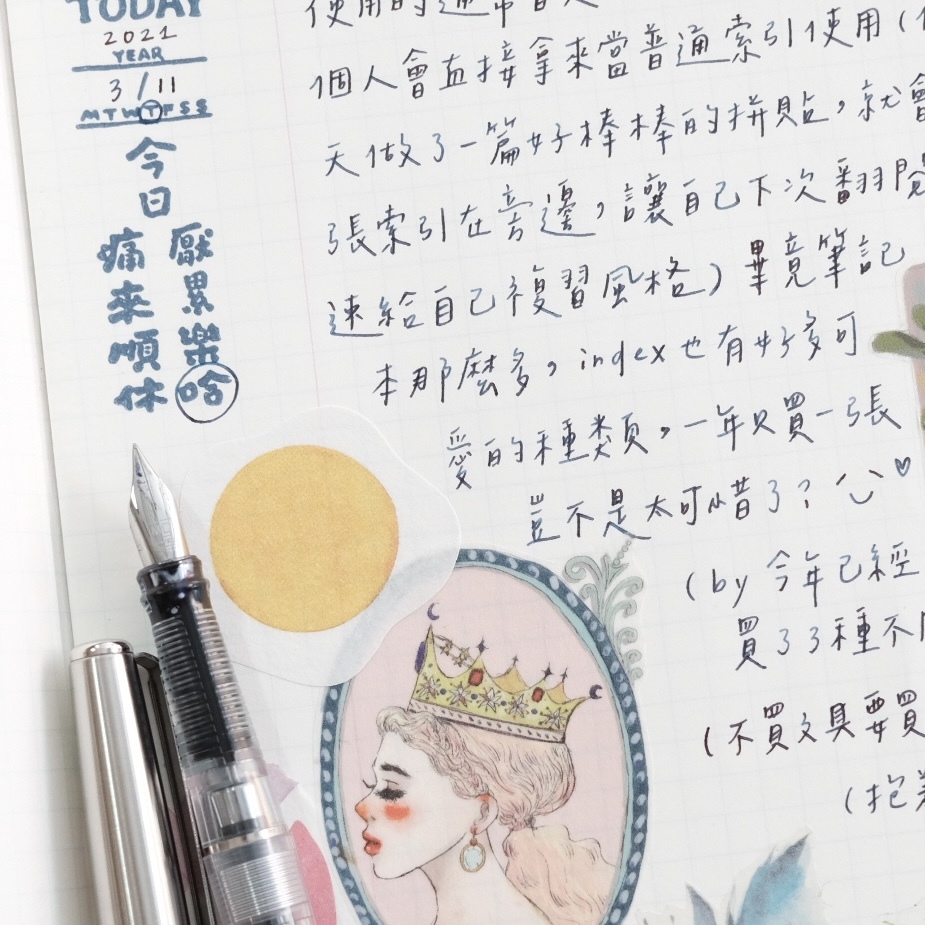 TODAY
2021
YEAR
3/11
MTWTFSS
今日
痛 厭
來 累
順 樂
休 啥
個人會直接拿來當普通索引使用(
天做了一篇好棒棒的拼貼，就會
張索引在旁邊，讓自己下次翻閱
速給自己複習風格)畢竟筆記
本那麼多，index也有好多可
愛的種類頁，一年只買一張
豈不是太可惜了?
(by 今年已經
買了3種不
(不買文具要買
(抱